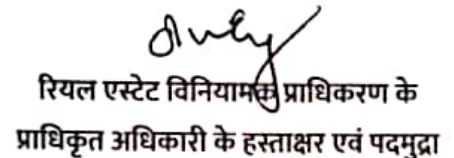 रियल एस्टेट विनियामक प्राधिकरण के
प्राधिकृत अधिकारी के हस्ताक्षर एवं पदमुद्रा